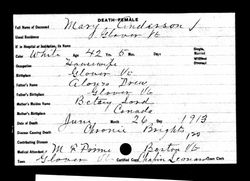 DEATH-FEMALE
Full Name of Deceased Mary Anderson
Usual Residence Glover Vt
If in Hospital or Institution, its Name
Color White Age 42 Yrs. 5 Mos. Days
Single, Married, Widowed, Divorced
Occupation Housewife
Place of Birth Glover Vt
Father's Name Alonzo Drew
Father's Birthplace Glover Vt
Mother's Maiden Name Betsey Lord
Mother's Birthplace Canada
Date of Death June Month 26 Day 1913
Disease Causing Death Chronic Brights
Contributing Disease
Medical Attendant Barton Vt
Town Glover Vt Certified Copy Town Clerk